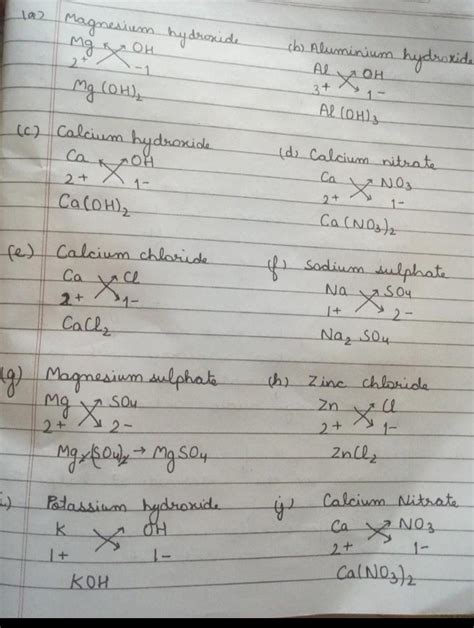 (a) Magnesium hydroxide
Mg OH
2+ -1
Mg(OH)2
(b) Aluminium hydroxide
Al OH
3+ 1-
Al(OH)3
(c) Calcium hydroxide
Ca OH
2+ 1-
Ca(OH)2
(d) Calcium nitrate
Ca NO3
2+ 1-
Ca(NO3)2
(e) Calcium chloride
Ca Cl
2+ 1-
CaCl2
(f) Sodium sulphate
Na SO4
1+ 2-
Na2 SO4
(g) Magnesium sulphate
Mg SO4
2+ 2-
Mg2(SO4)2 → MgSO4
(h) Zinc chloride
Zn Cl
2+ 1-
ZnCl2
i) Potassium hydroxide
K OH
1+ 1-
KOH
(j) Calcium Nitrate
Ca NO3
2+ 1-
Ca(NO3)2